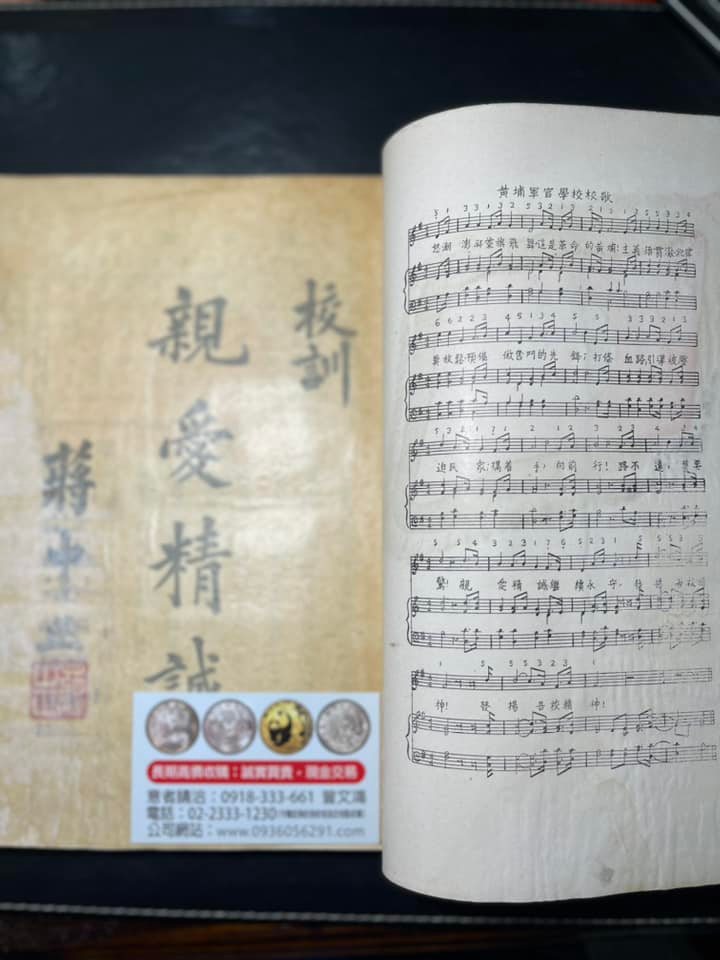 校訓
親愛精誠
蔣中正
長期高價收購：誠實買賣・現金交易
意者請洽：0918-333-661 曾文鴻
電話：02-2333-1230
公司網站：www.0936056291.com
黃埔軍官學校校歌
怒潮 澎湃黨旗飛舞這是革命 的黃埔！主義須貫澈紀律
莫放鬆預備 做奮鬥的先 鋒；打條 血路，引導被壓
迫民 衆；攜着 手，向前 行！路不 遠，莫要
驚！親 愛精 誠繼 續永 守，發揚
神！ 發 揚 吾校精 神！